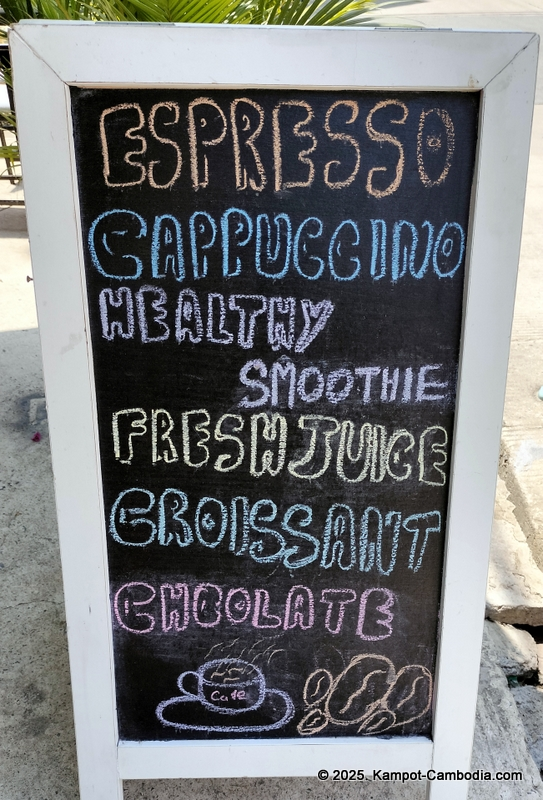 ESPRESSO
CAPPUCCINO
HEALTHY
SMOOTHIE
FRESH JUICE
CROISSANT
CHCOLATE
Cafe
© 2025. Kampot-Cambodia.com